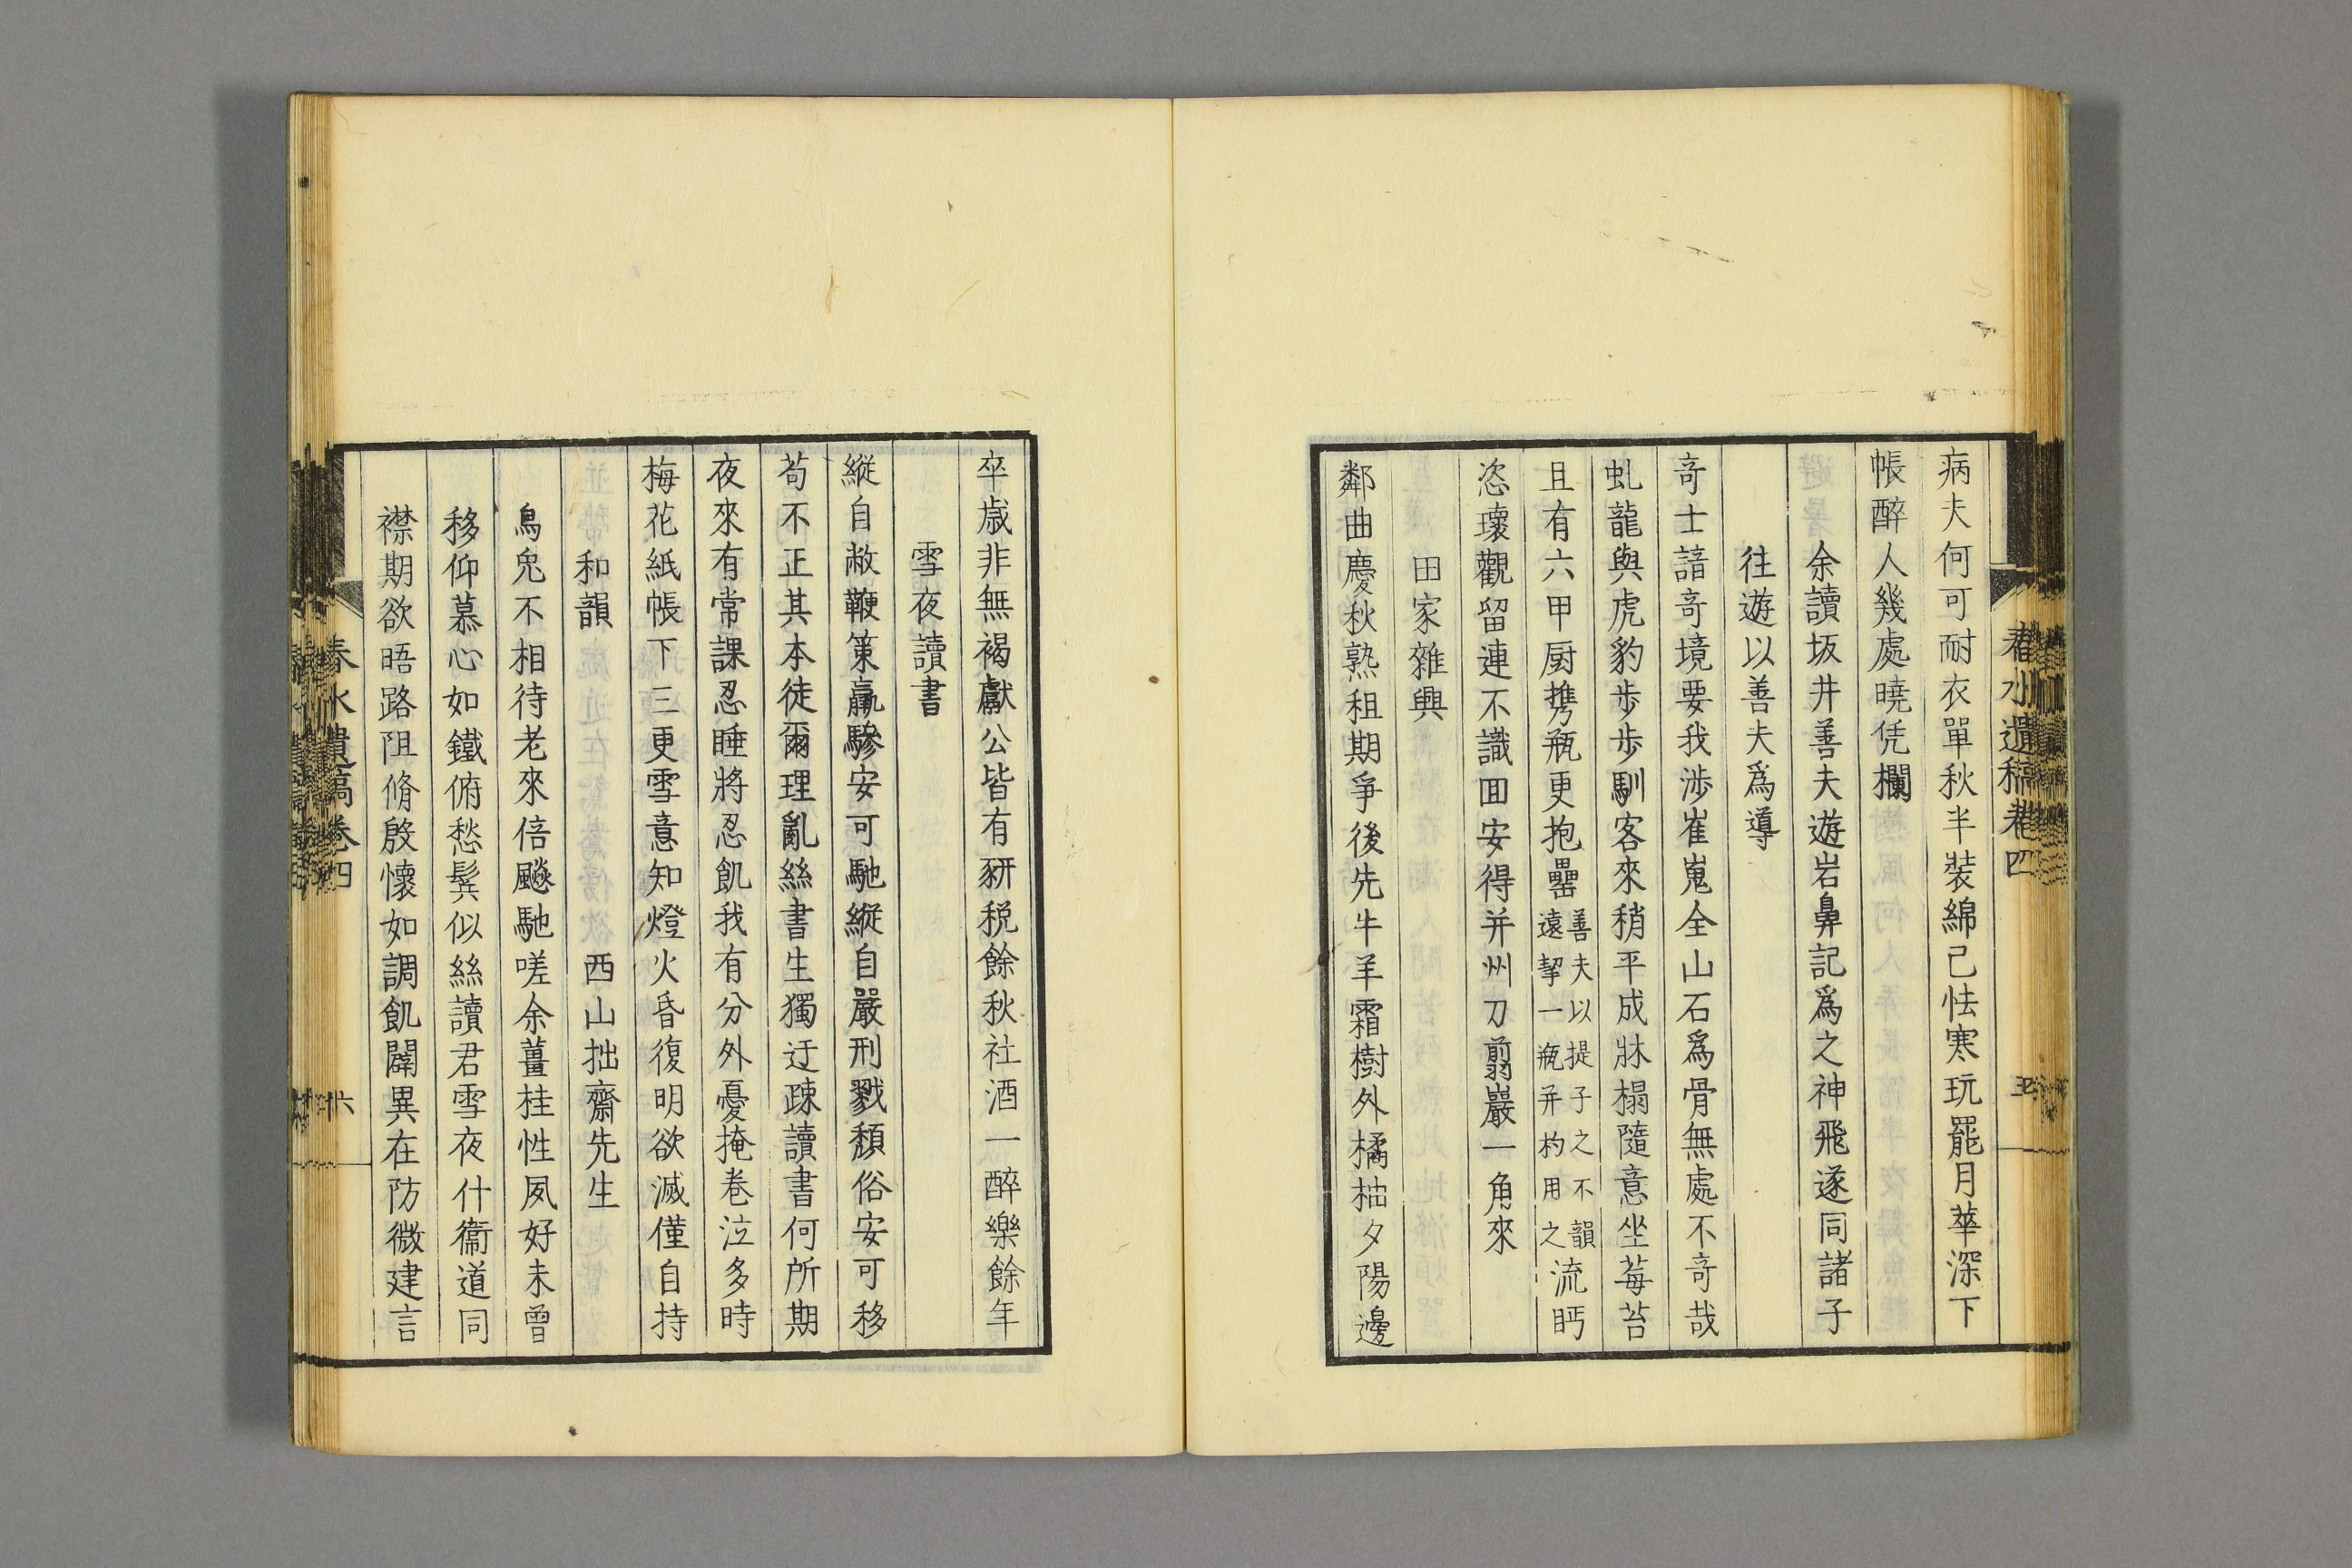 春水遺稿卷四
五
病夫何可耐衣單秋半裝綿已怯寒玩罷月華深下
帳醉人幾處曉凭欄
余讀坂井善夫遊岩鼻記爲之神飛遂同諸子
往遊以善夫爲導
奇士諳奇境要我涉崔嵬全山石爲骨無處不奇哉
虬龍與虎豹歩歩馴客來稍平成牀榻隨意坐莓苔
且有六甲厨携瓶更抱罍善夫以提子之不韻
遠挈一瓶并杓用之流眄
恣瓌觀留連不識囬安得并州刀翦巖一角來
田家雜興
鄰曲慶秋熟租期爭後先牛羊霜樹外橘柚夕陽邊
卒歳非無褐獻公皆有豜税餘秋社酒一醉樂餘年
雪夜讀書
縱自敝鞭策羸驂安可馳縱自嚴刑戮頽俗安可移
苟不正其本徒爾理亂絲書生獨迂疎讀書何所期
夜來有常課忍睡將忍飢我有分外憂掩卷泣多時
梅花紙帳下三更雪意知燈火昏復明欲滅僅自持
和韻　西山拙齋先生
鳥兔不相待老來倍飈馳嗟余薑桂性夙好未曾
移仰慕心如鐵俯愁鬂似絲讀君雪夜什衞道同
襟期欲晤路阻脩殷懷如調飢闢異在防微建言
春水遺稿卷四
六